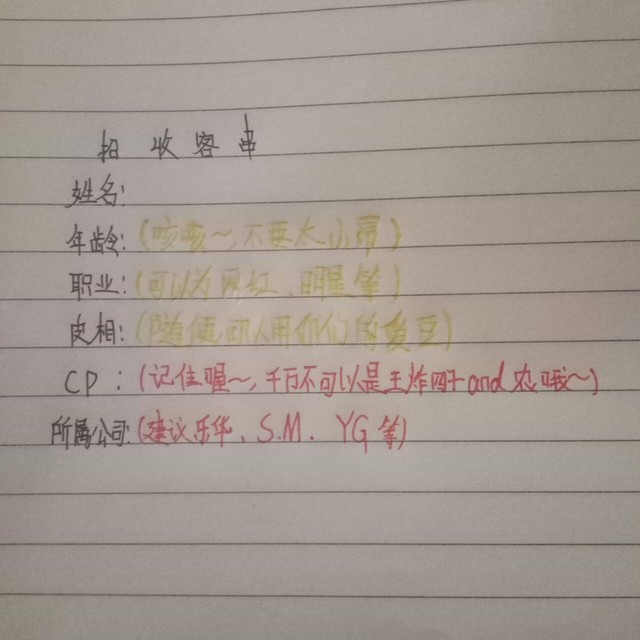 招收客串
姓名:
年龄:(咳咳~,不要太小帮)
职业:(可以为网红、明星等)
皮相:(随便可以用你们的爱豆)
CP:(记住喔~,千万不可以是王炸四子and农哦~)
所属公司:(建议乐华、S.M、YG等)